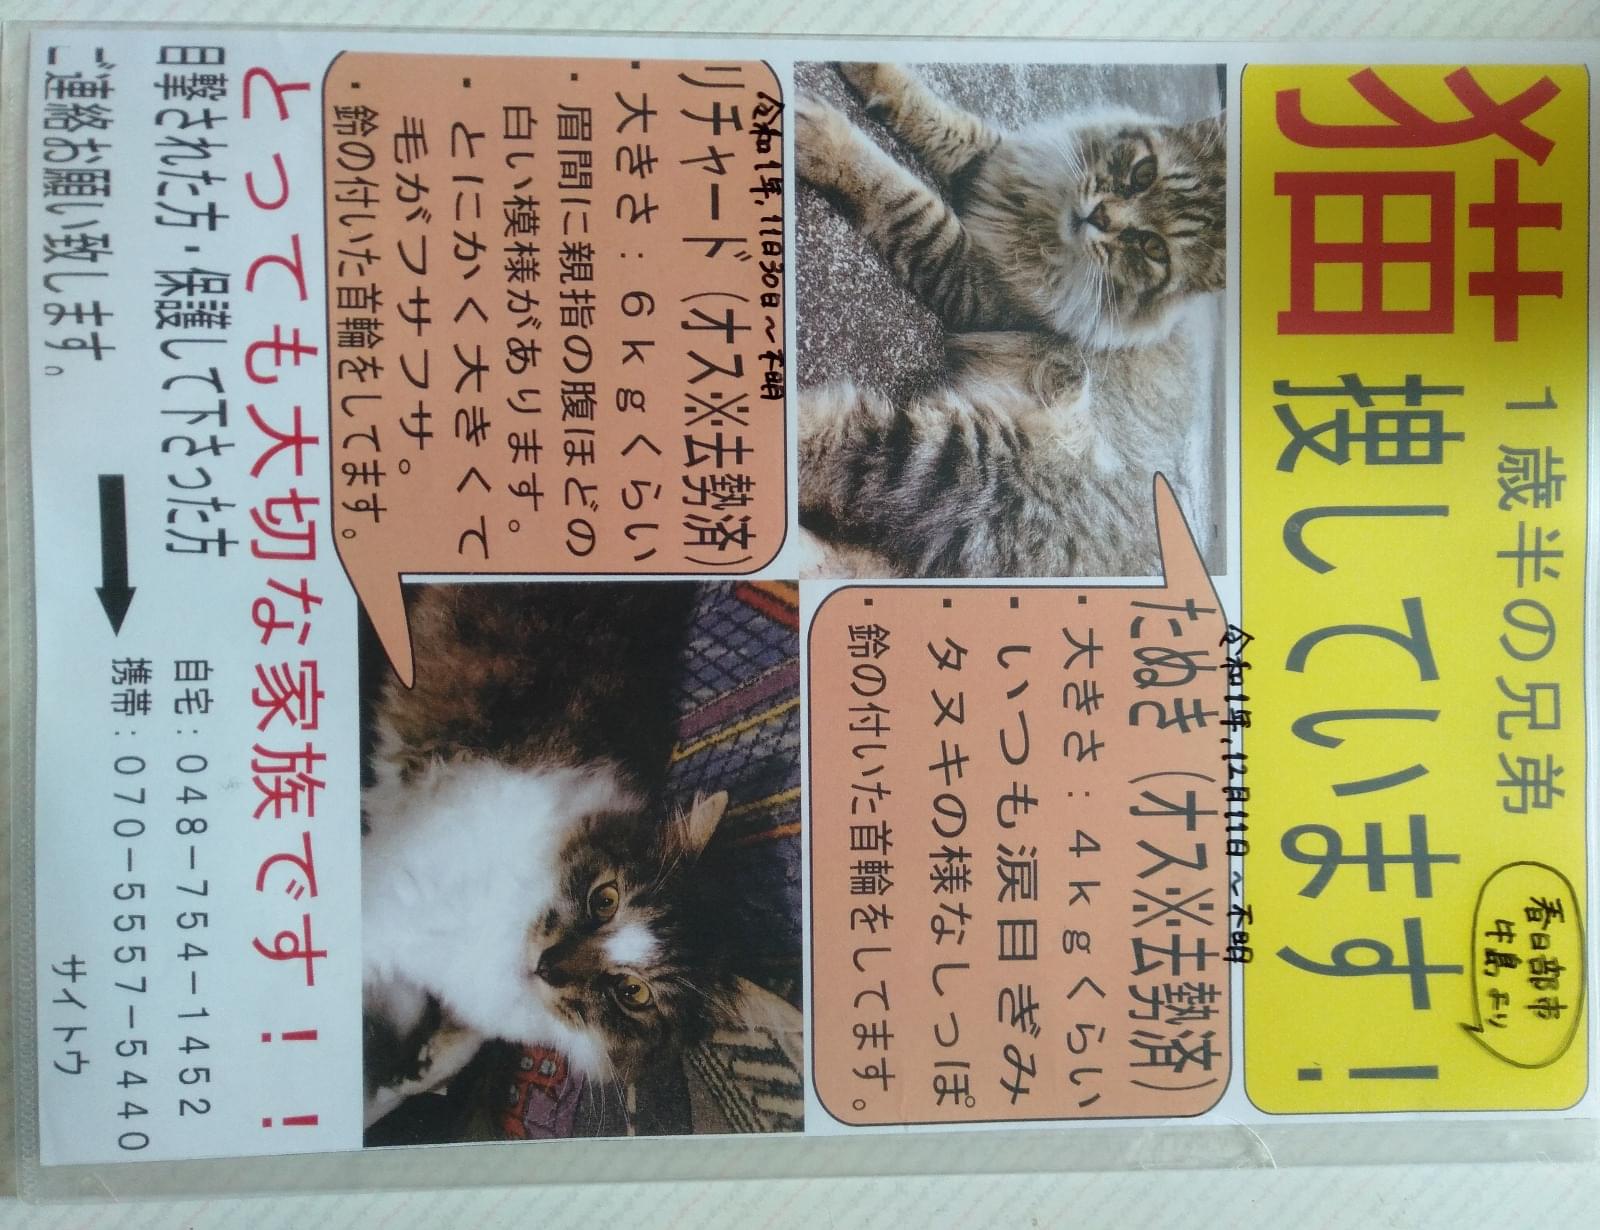 1歳半の兄弟
猫捜しています！
春日部市
牛島より
令和1年,12月11日～不明
たぬき（オス※去勢済）
・大きさ：4kgくらい
・いつも涙目ぎみ
・タヌキの様なしっぽ
・鈴の付いた首輪をしてます。
令和1年,11日30日～不明
リチャード（オス※去勢済）
・大きさ：6kgくらい
・眉間に親指の腹ほどの
白い模様があります。
・とにかく大きくて
毛がフサフサ。
・鈴の付いた首輪をしてます。
とっても大切な家族です！！
目撃された方・保護して下さった方
ご連絡お願い致します。
自宅：048-754-1452
携帯：070-5557-5440
サイトウ